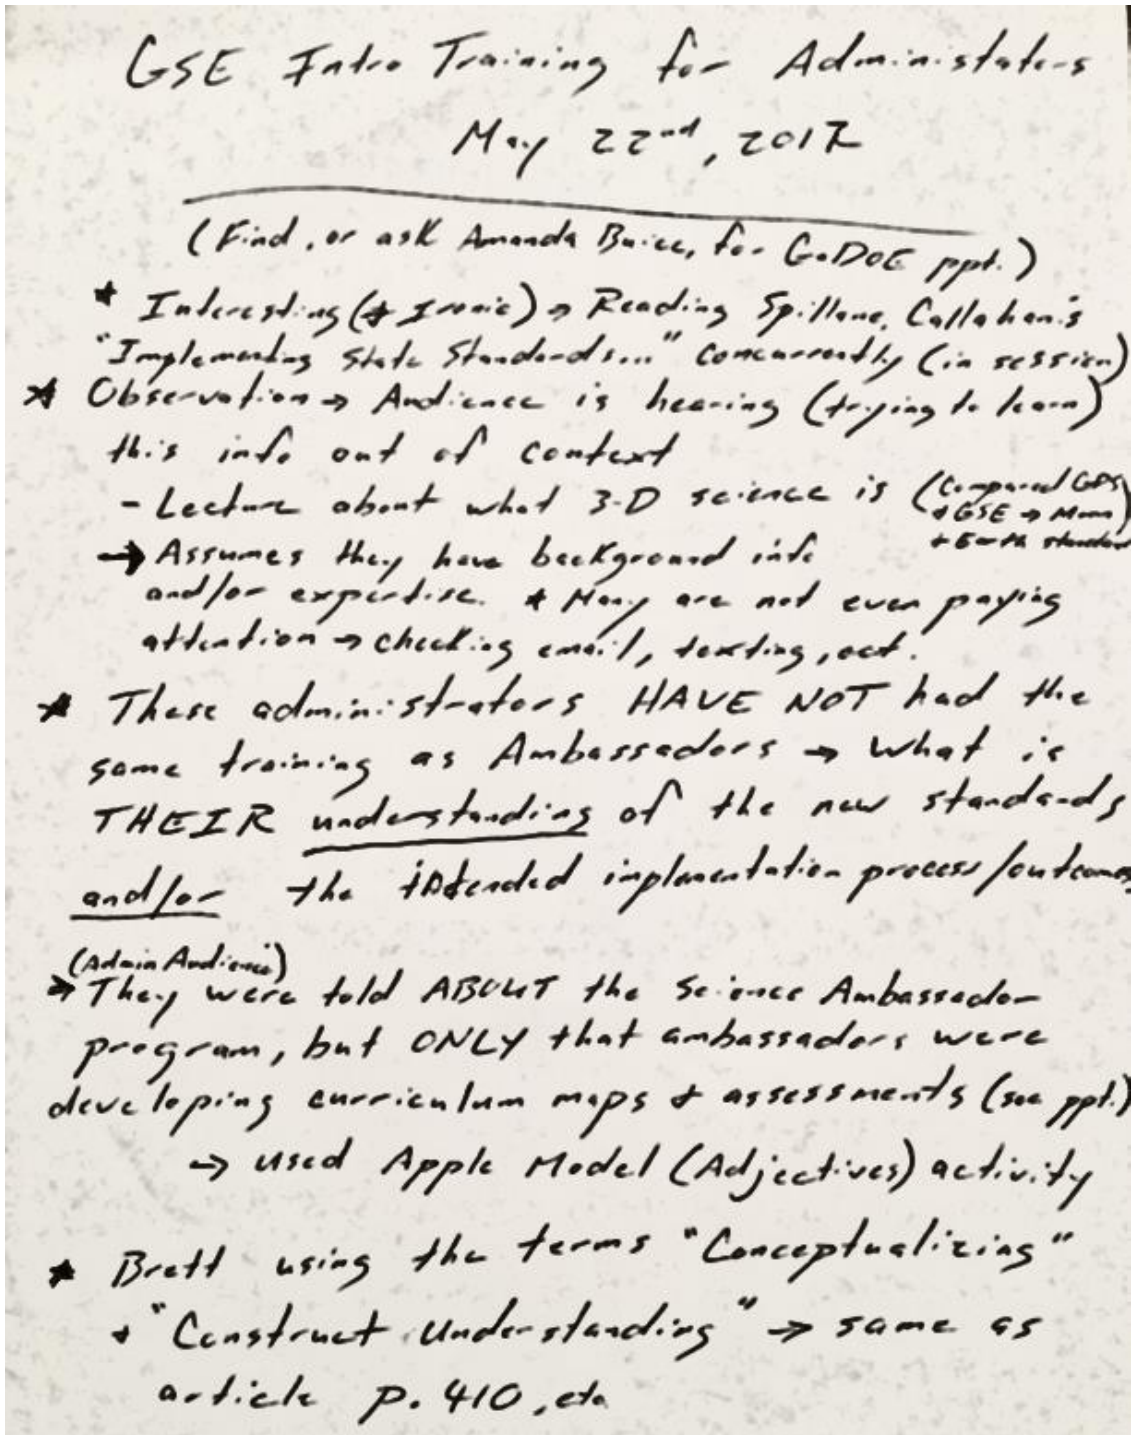 GSE Intro Training for Administators
May 22nd, 2017
(Find, or ask Amanda Buice, for GaDOE ppt.)
* Interesting (+ Ironic) → Reading Spillane, Callahan's
"Implementing State Standards..." concurrently (in session)
* Observation → Audience is hearing (trying to learn)
this info out of context
- Lecture about what 3-D science is (Compared GPS
+ GSE → Moon
+ Earth standard
→ Assumes they have background info
and/or expertise. * Many are not even paying
attention → checking email, texting, ect.
* These administrators HAVE NOT had the
same training as Ambassadors → What is
THEIR understanding of the new standards
and/or the intended implementation process/outcomes
(Admin Audience)
→ They were told ABOUT the Science Ambassador
program, but ONLY that ambassadors were
developing curriculum maps + assessments (see ppt.)
→ used Apple Model (Adjectives) activity
* Brett using the terms "Conceptualizing"
+ "Construct Understanding" → same as
article p. 410, etc